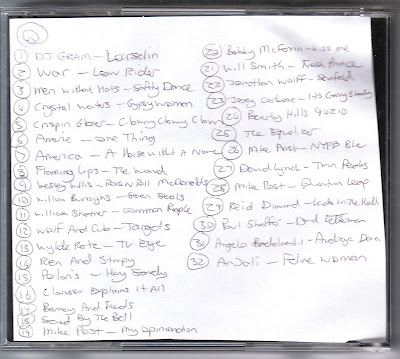 Q
1 DJ GRAM - Louselin
2 War - Low Rider
3 men without Hats - Safty Dance
4 Crystal Waters - Gypsy Woman
5 Crispin Glover - Clowny Clowny Clown
6 Amerie - one Thing
7 America - A Horse without A Name
8 Flaming Lips - The Wand
9 Wesley Willis - Rock n Roll McDonalds
10 William Burroughs - Seven Seals
11 William Shatner - Common People
12 Wolf And Cub - Targets
13 Wylde Ratz - TV Eye
14 Ren And Stimpy
15 Polaris - Hey Sandy
16 Clarissa Explains It All
17 Beavis And
18 Saved By The Bell
19 Mike Post - my opinionation
20 Bobby McFerrin - kiss me
21 Will Smith - Fresh Prince
22 Jonathan Wolff - Seinfeld
23 Joey - Its Garry Shandling
24 Beverly Hills 90210
25 The Equalizer
26 Mike Post - NYPD Blue
27 David Lynch - Twin Peaks
28 Mike Post - Quantum Leap
29 Reid Diamond - Kids In The Hall
30 Paul Shaffer - David Letterman
31 Angelo Badalamenti - Audreys Dance
32 Anjali - Feline Woman